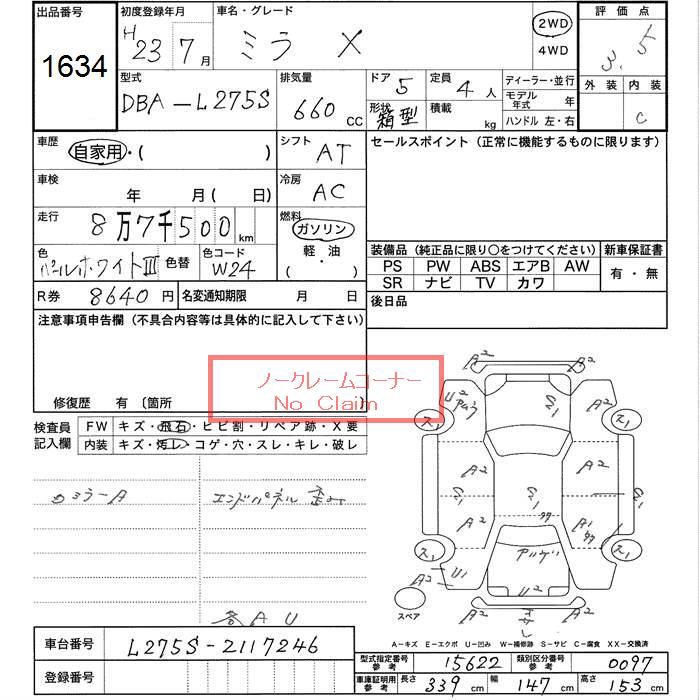 出品番号 初度登録年月 車名・グレード 評価点
1634 H 23 7月 ミラ X 2WD 4WD 3.5
型式 排気量 ドア 定員 ディーラー・並行 外装 内装
DBA-L275S 660 CC 5 4人 モデル年式 年 C
形状 箱型 積載 kg ハンドル 左・右
車歴 自家用・( ) シフト AT セールスポイント (正常に機能するものに限ります)
車検 年 月 ( 日) 冷房 AC
走行 8万7千500km 燃料 ガソリン
軽油
( )
色 パールホワイトIII 色替 色コード W24
装備品 (純正品に限り○をつけてください) 新車保証書
PS PW ABS エアB AW 有・無
SR ナビ TV カワ
R券 8640円 名変通知期限 月 日 後日品
注意事項申告欄 (不具合内容等は具体的に記入して下さい)
ノークレームコーナー
No Claim
修復歴 有 〔箇所
検査員記入欄 FW キズ・飛石・ヒビ割・リペア跡・X要
内装 キズ・汚レ・コゲ・穴・スレ・キレ・破レ
ミラーA エンドパネル 歪み
各AU
A2 A2
U2 A2
ス1 ス1
A2 A2
A2
ス1 ス1
A2 U1 U2 A2
スペア
A-キズ E-エクボ U-凹み W-補修跡 S-サビ C-腐食 XX-交換済
車台番号 L275S-2117246
登録番号
型式指定番号 参考 15622 類別区分番号 参考 0097
車庫証明用 参考 長さ 339cm 幅 147cm 高さ 153cm